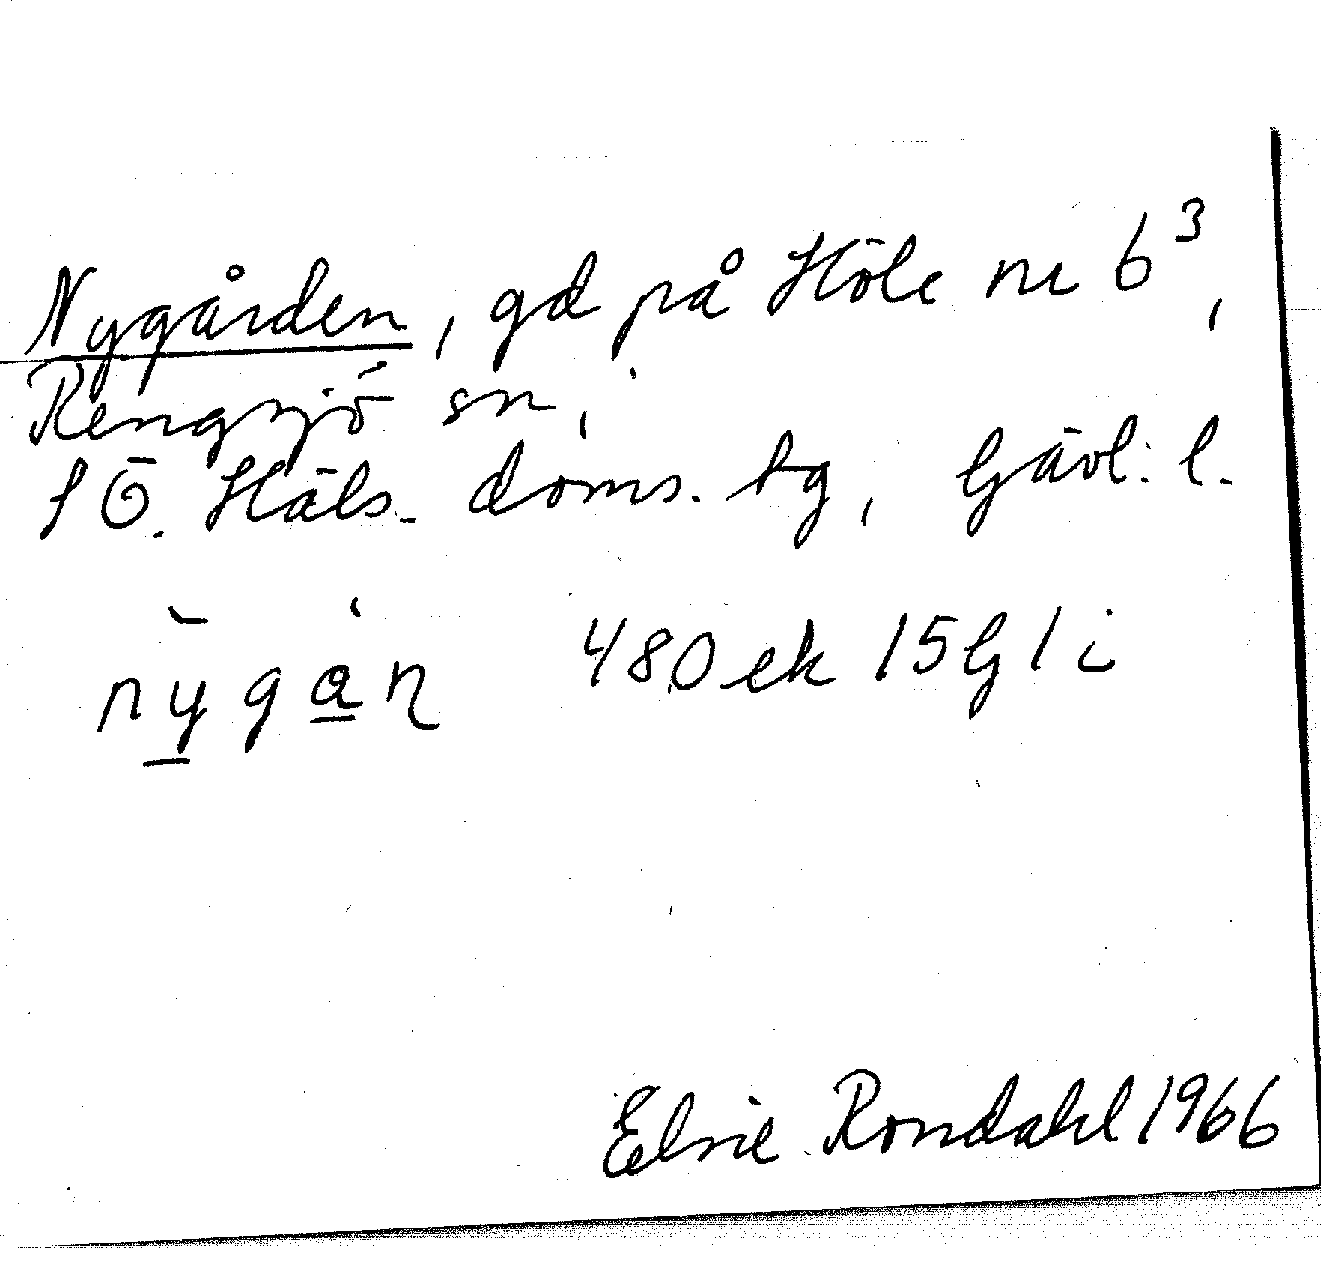 Nygården, gd på Höle nr 6³,
Rengsjö sn,
S Ö. Häls. doms. tg, Gävl. l.
nỳgån 480 ek 15G1i
Elsie Rondahl 1966